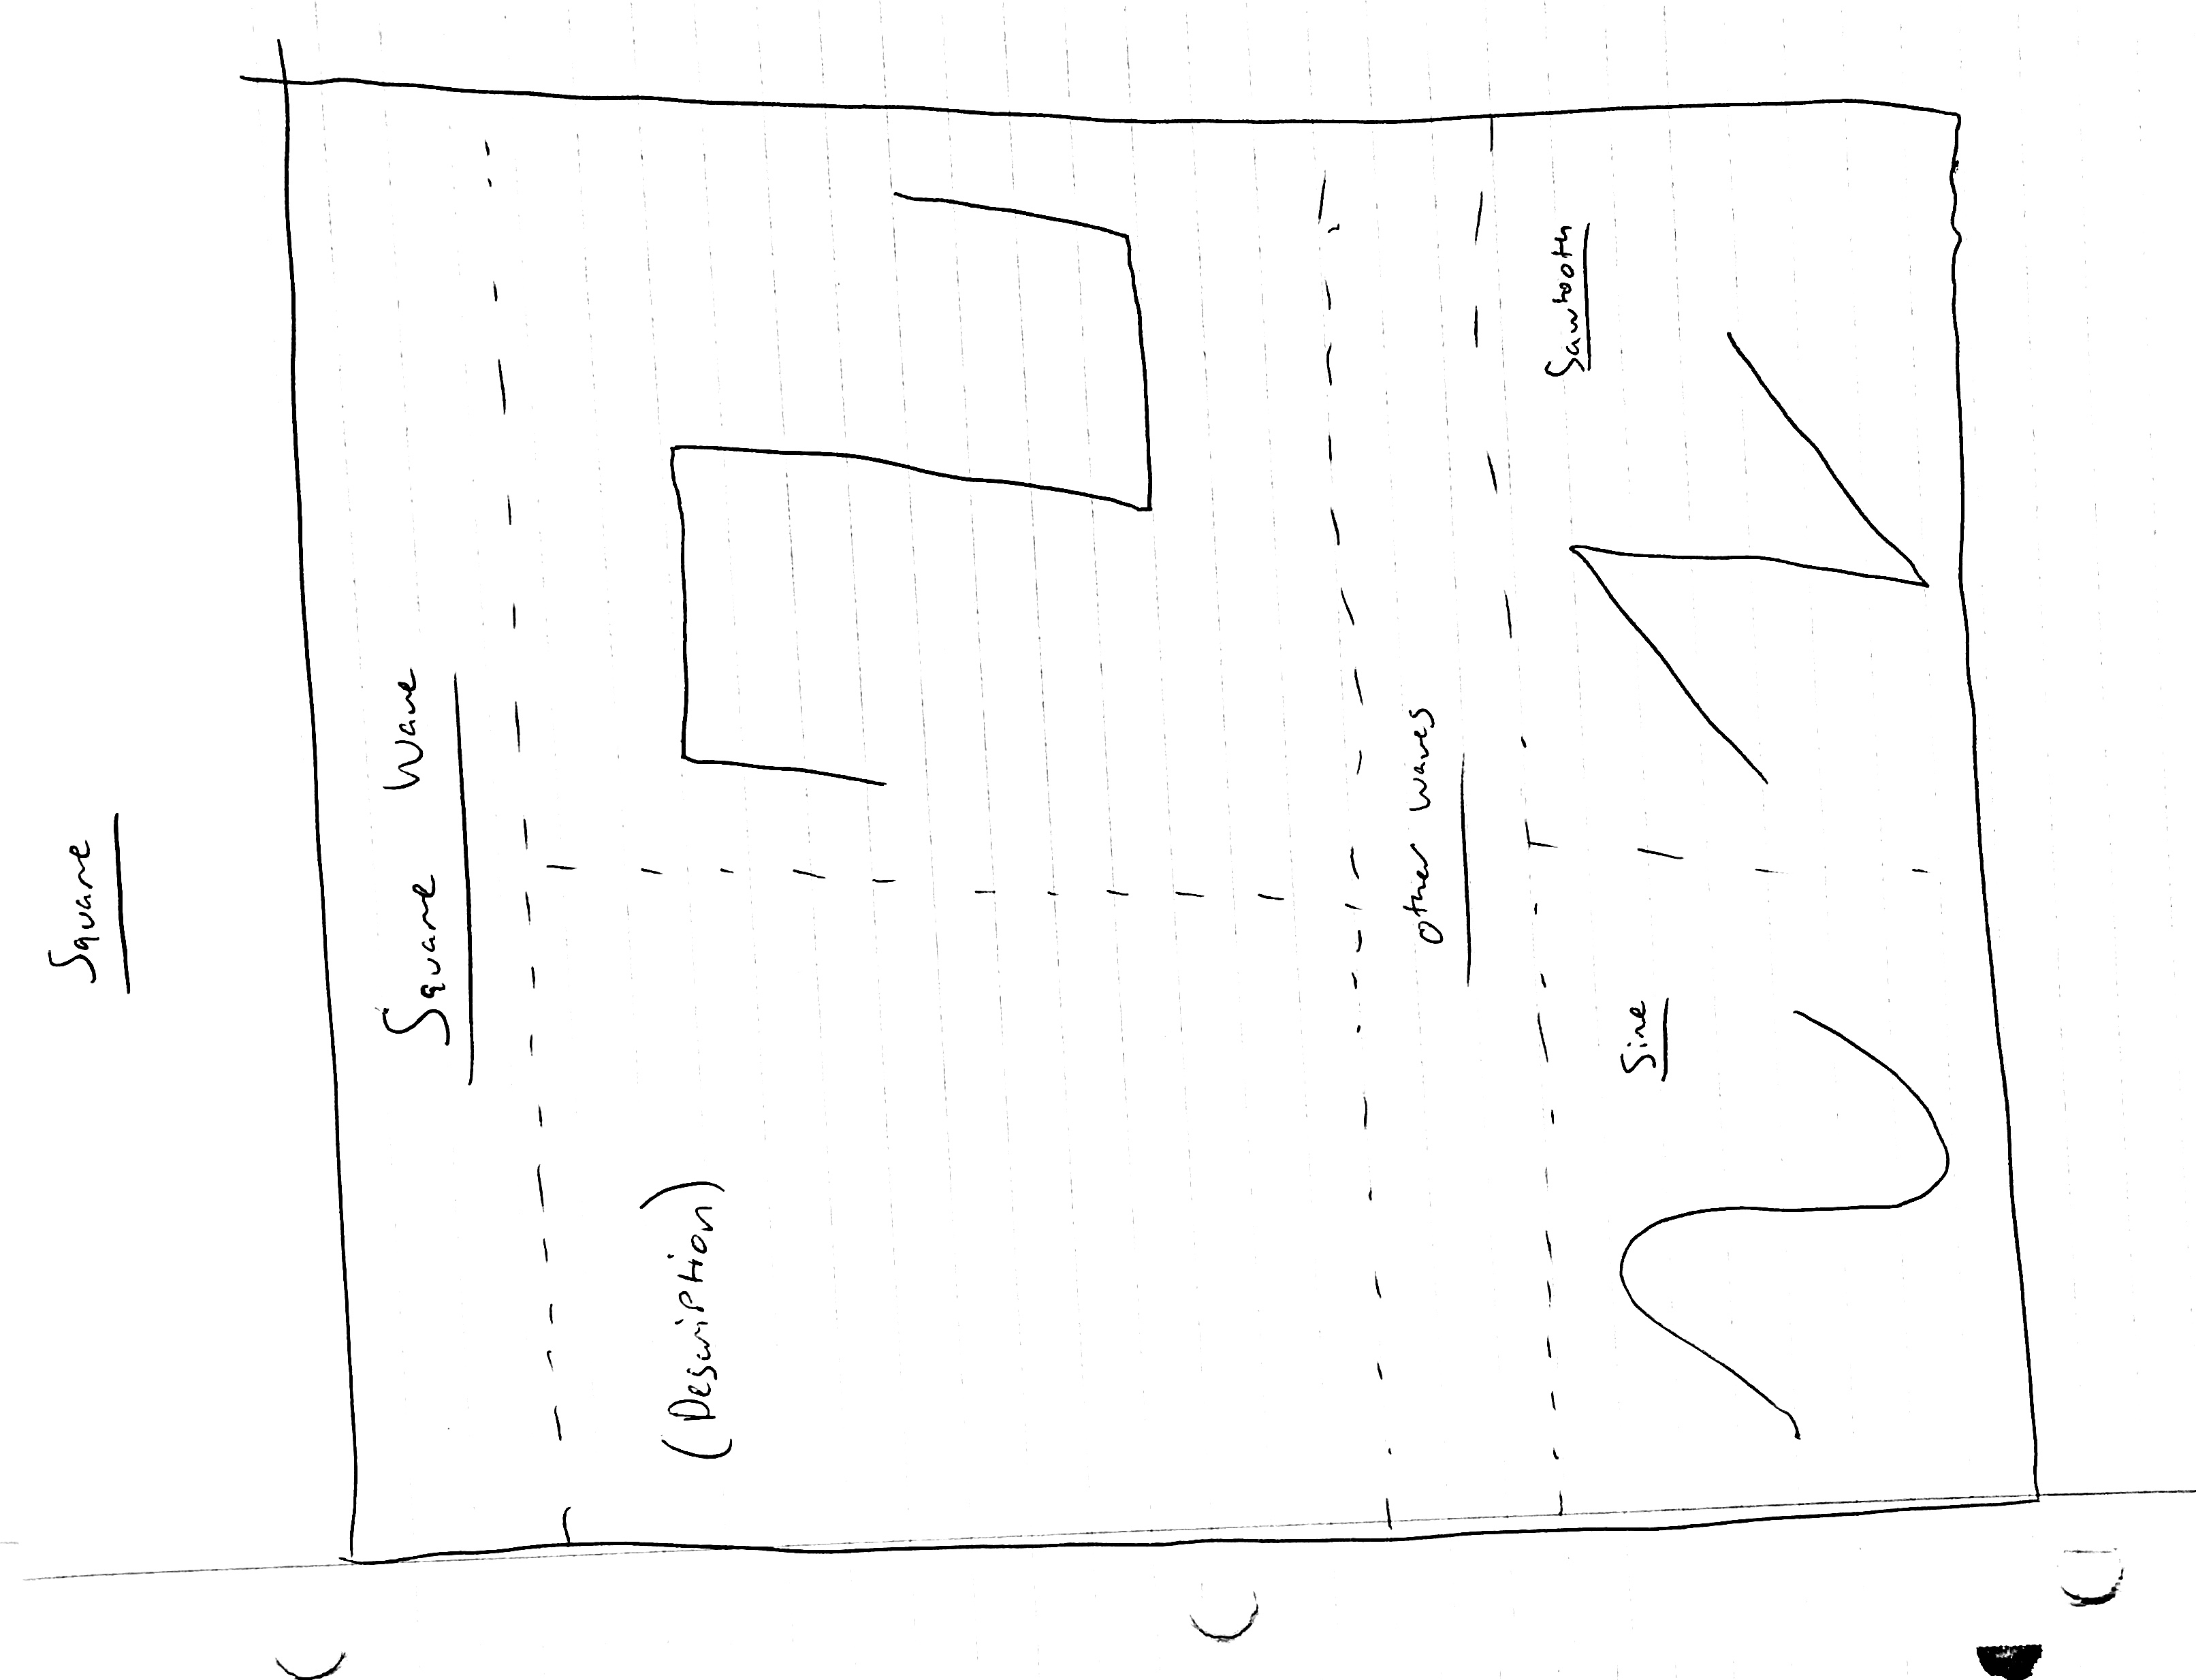 Square
Square Wave
(Description)
other waves
Sine
Sawtooth